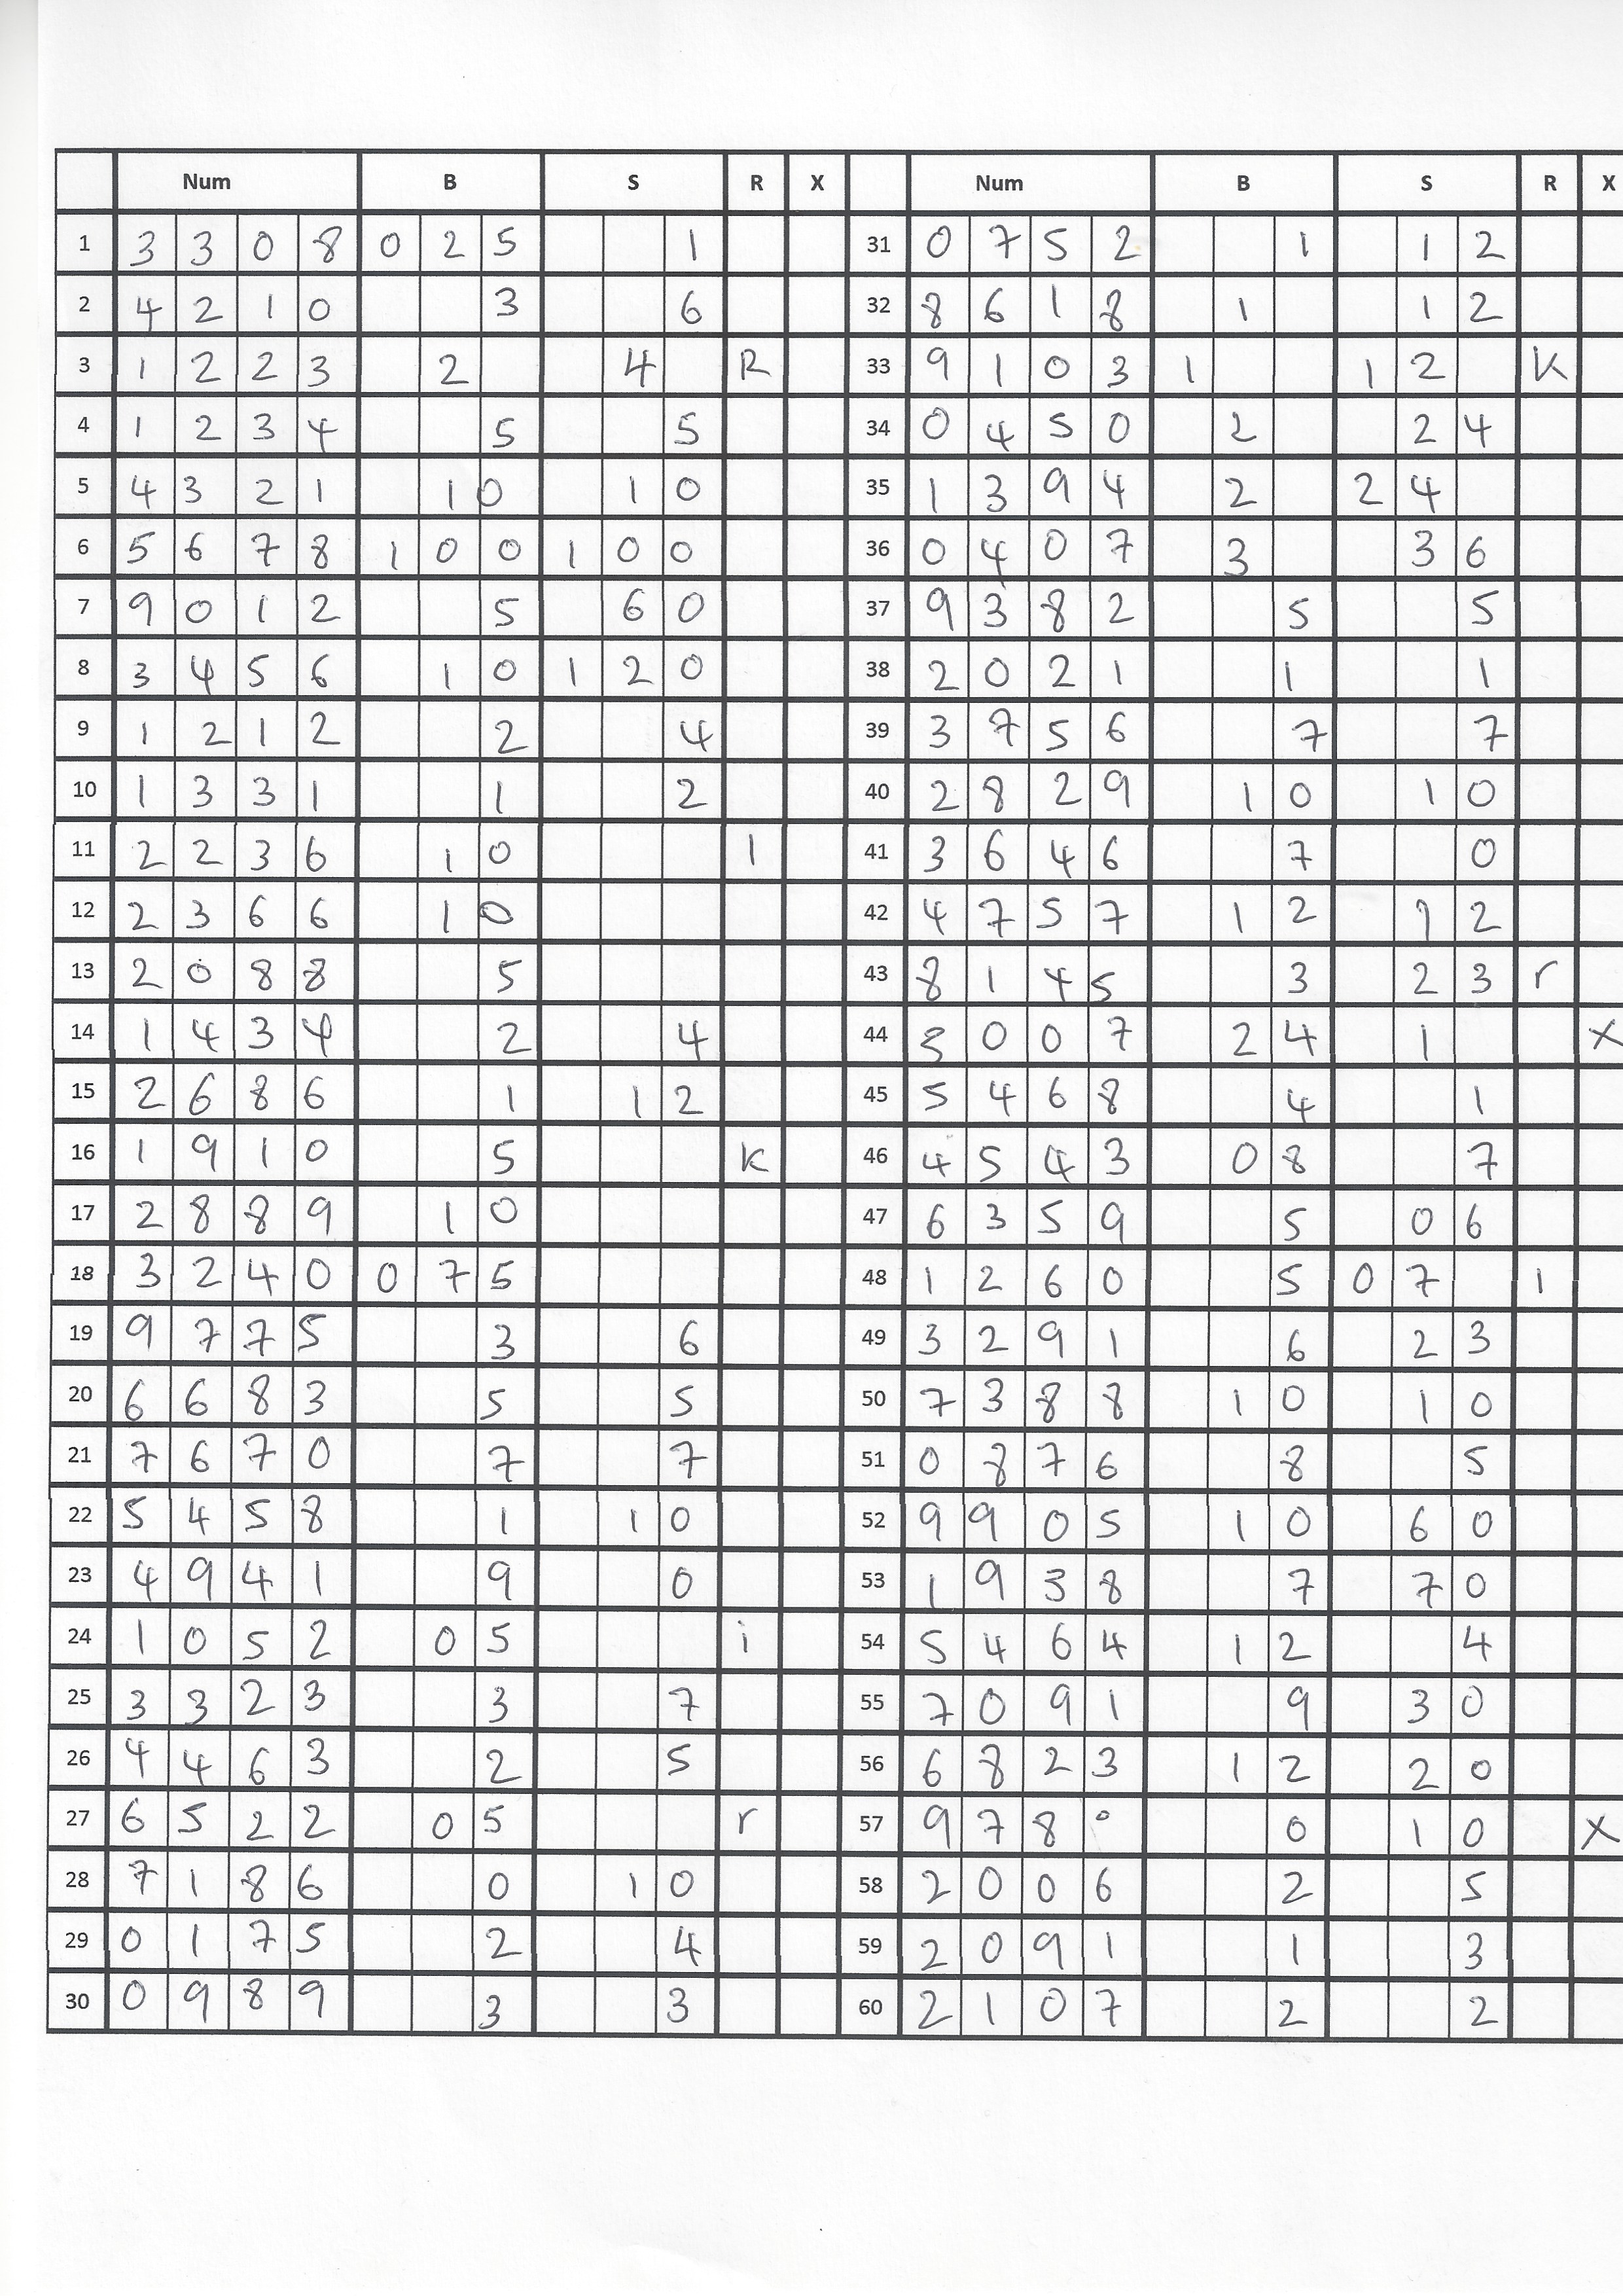 Num B S R X Num B S R X
1 3 3 0 8 0 2 5 1 31 0 7 5 2 1 1 2
2 4 2 1 0 3 6 32 8 6 1 8 1 1 2
3 1 2 2 3 2 4 R 33 9 1 0 3 1 1 2 K
4 1 2 3 4 5 5 34 0 4 5 0 2 2 4
5 4 3 2 1 1 0 1 0 35 1 3 9 4 2 2 4
6 5 6 7 8 1 0 0 1 0 0 36 0 4 0 7 3 3 6
7 9 0 1 2 5 6 0 37 9 3 8 2 5 5
8 3 4 5 6 1 0 1 2 0 38 2 0 2 1 1 1
9 1 2 1 2 2 4 39 3 7 5 6 7 7
10 1 3 3 1 1 2 40 2 8 2 9 1 0 1 0
11 2 2 3 6 1 0 1 41 3 6 4 6 7 0
12 2 3 6 6 1 0 42 4 7 5 7 1 2 1 2
13 2 0 8 8 5 43 8 1 4 5 3 2 3 r
14 1 4 3 4 2 4 44 8 0 0 7 2 4 1 X
15 2 6 8 6 1 1 2 45 5 4 6 8 4 1
16 1 9 1 0 5 K 46 4 5 4 3 0 8 7
17 2 8 8 9 1 0 47 6 3 5 9 5 0 6
18 3 2 4 0 0 7 5 48 1 2 6 0 5 0 7 1
19 9 7 7 5 3 6 49 3 2 9 1 6 2 3
20 6 6 8 3 5 5 50 7 3 8 8 1 0 1 0
21 7 6 7 0 7 7 51 0 8 7 6 8 5
22 5 4 5 8 1 1 0 52 9 9 0 5 1 0 6 0
23 4 9 4 1 9 0 53 1 9 3 8 7 7 0
24 1 0 5 2 0 5 i 54 5 4 6 4 1 2 4
25 3 3 2 3 3 7 55 7 0 9 1 9 3 0
26 4 4 6 3 2 5 56 6 8 2 3 1 2 2 0
27 6 5 2 2 0 5 r 57 9 7 8 0 0 1 0 X
28 7 1 8 6 0 1 0 58 2 0 0 6 2 5
29 0 1 7 5 2 4 59 2 0 9 1 1 3
30 0 9 8 9 3 3 60 2 1 0 7 2 2